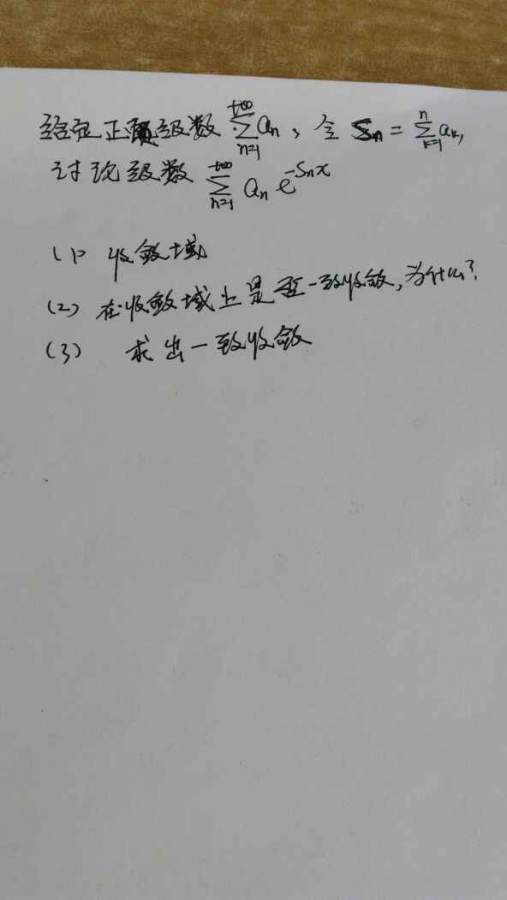 给定正项级数 $\sum_{n=1}^{+\infty} a_n$, 令 $S_n = \sum_{k=1}^{n} a_k$,
讨论级数 $\sum_{n=1}^{+\infty} a_n e^{-S_n x}$
(1) 收敛域
(2) 在收敛域上是否一致收敛, 为什么?
(3) 求出一致收敛